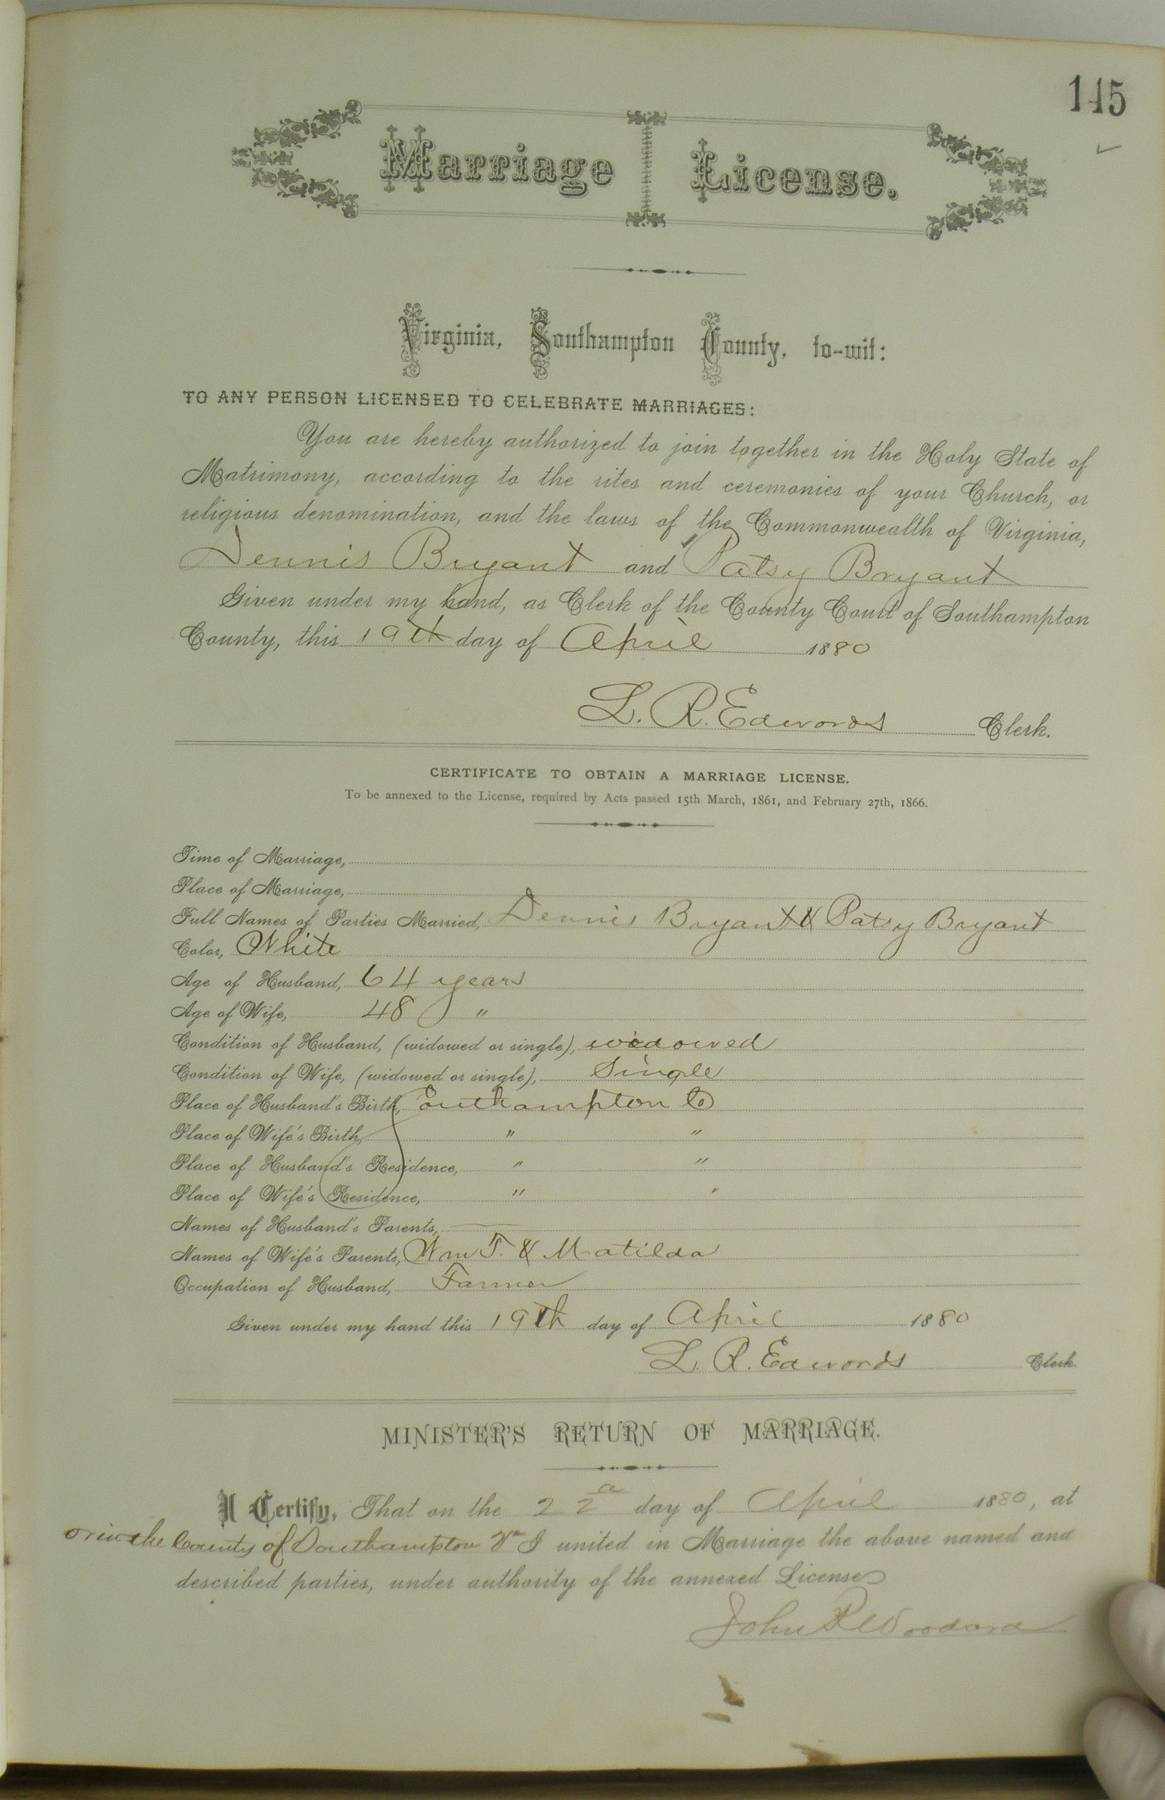 145
Marriage License.
Virginia, Southampton County, to-wit:
TO ANY PERSON LICENSED TO CELEBRATE MARRIAGES:
You are hereby authorized to join together in the Holy State of
Matrimony, according to the rites and ceremonies of your Church, or
religious denomination, and the laws of the Commonwealth of Virginia,
Dennis Bryant and Patsy Bryant
Given under my hand, as Clerk of the County Court of Southampton
County, this 19th day of April 1880
L. R. Edwards Clerk.
CERTIFICATE TO OBTAIN A MARRIAGE LICENSE.
To be annexed to the License, required by Acts passed 15th March, 1861, and February 27th, 1866.
Time of Marriage,
Place of Marriage,
Full Names of Parties Married, Dennis Bryant & Patsy Bryant
Color, White
Age of Husband, 64 years
Age of Wife, 48 "
Condition of Husband, (widowed or single), widowed
Condition of Wife, (widowed or single), Single
Place of Husband's Birth, Southampton Co
Place of Wife's Birth, " "
Place of Husband's Residence, " "
Place of Wife's Residence, " "
Names of Husband's Parents,
Names of Wife's Parents, Wm T. & Matilda
Occupation of Husband, Farmer
Given under my hand this 19th day of April 1880
L. R. Edwards Clerk
MINISTER'S RETURN OF MARRIAGE.
I Certify, That on the 22 day of April 1880, at
or in the County of Southampton Va I united in Marriage the above named and
described parties, under authority of the annexed License
John R Woodard